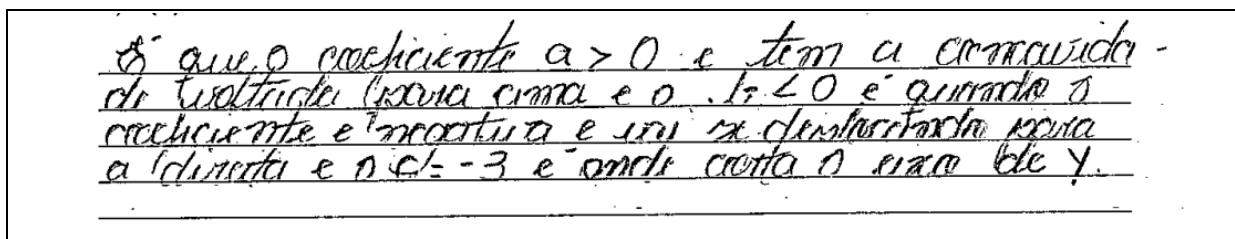 É que o coeficiente a > 0 e tem a concavida -
de voltada para cima e o b < 0 é quando o
coeficiente e negativa e vai se deslocando para
a direita e o c = -3 e onde corta o eixo de Y.